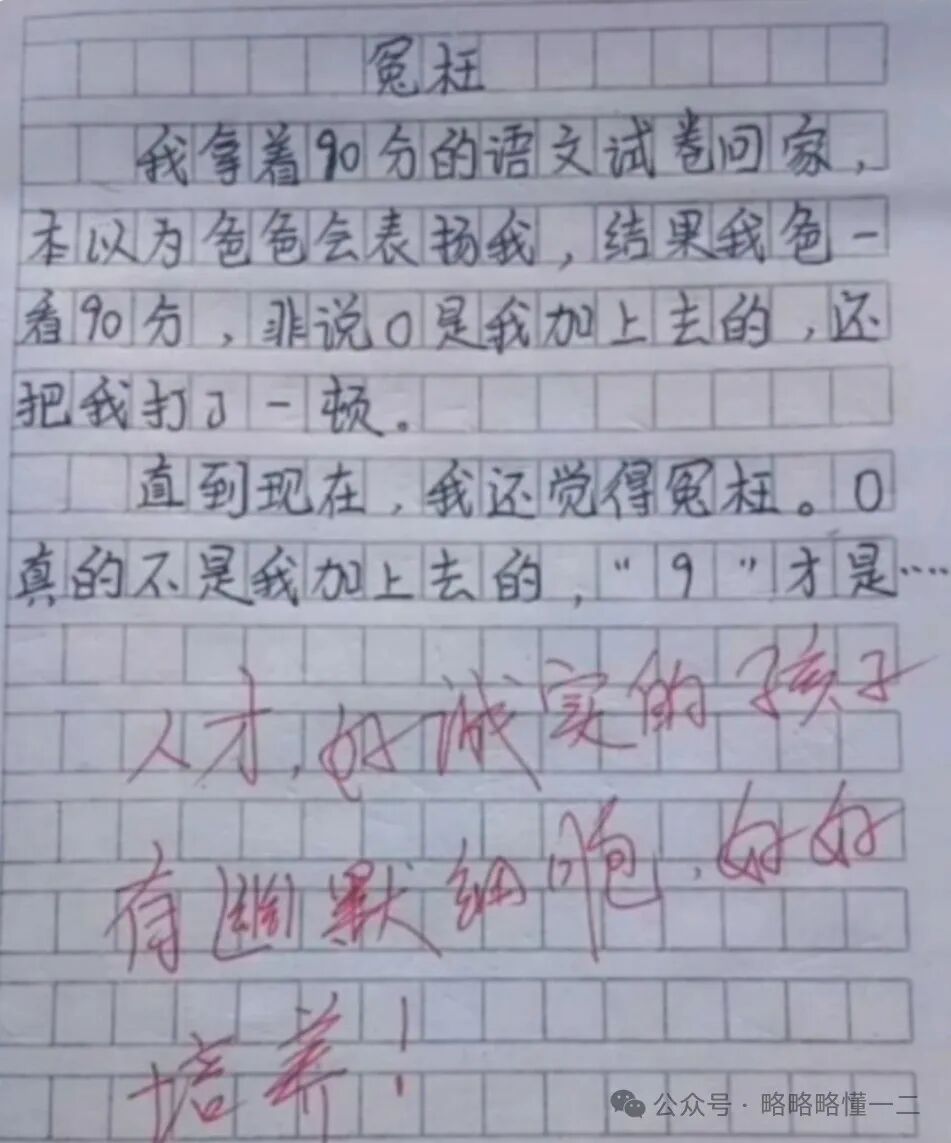 冤枉
我拿着90分的语文试卷回家，
本以为爸爸会表扬我，结果我爸一
看90分，非说0是我加上去的，还
把我打了一顿。
直到现在，我还觉得冤枉。0
真的不是我加上去的，“9”才是……
人才，好诚实的孩子
有幽默细胞，好好
培养！
公众号·略略略懂一二